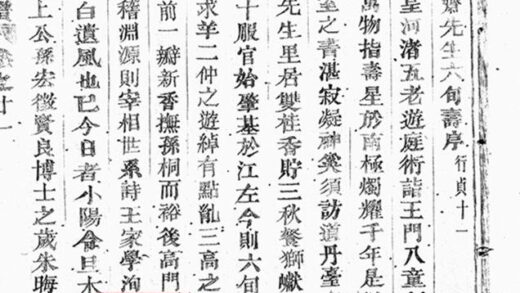 齋先生六旬壽序 行貞十一
呈河渚五老遊庭術詣王門八童
萬物指壽星於南極燭耀千年是
之書湛寂凝神奚須訪道丹臺
先生里居雙桂香貯三秋餐獅巘
十服官始肇基於江左今則六旬
求羊二仲之遊綽有點亂三高之
前一瓣新香撫孫桐而裕後高門
稽淵源則宰相世系詩王家學洵
白遺風也已今日者小陽令旦木
上公孫宏徵賢良博士之歲朱晦